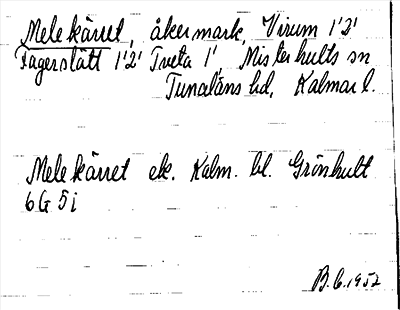 Melekärret, åkermark, Virum 1'2'
Fagerslätt 1'2' Tveta 1', Misterhults sn
Tunaläns hd, Kalmar l.
Melekärret ek. Kalm. bl. Grönhult
6G 5i
B.G. 1952